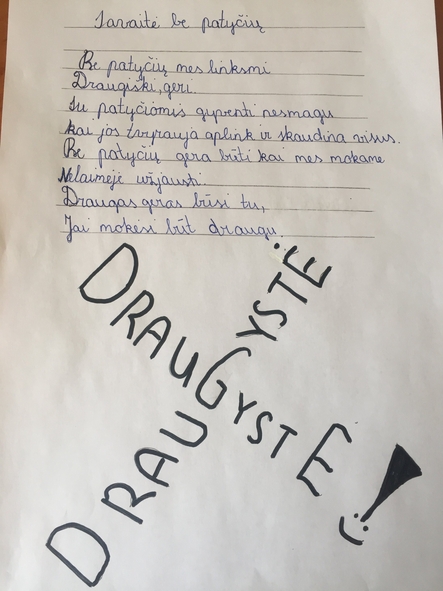 Savaitė be patyčių
Be patyčių mes linksmi
Draugiški, geri.
Su patyčiomis gyventi nesmagu
kai jos tvyrauja aplink ir skaudina visus.
Be patyčių gera būti kai mes mokame
Nelaimėje užjausti.
Draugas geras būsi tu,
Jai mokėsi būt draugu.
DRAUGYSTĖ
DRAUGYSTĖ!